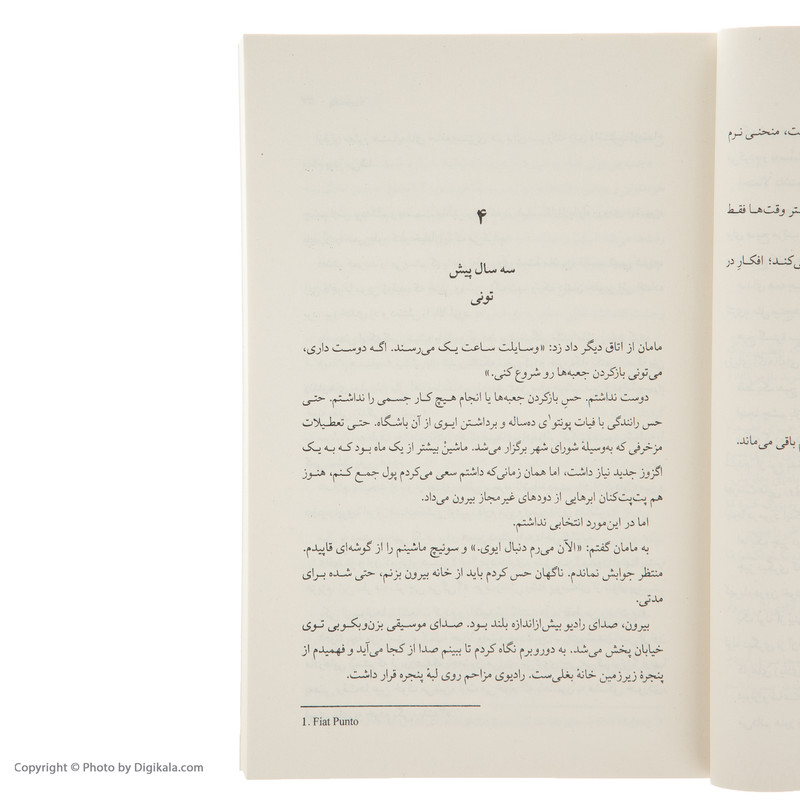 ۴
سه سال پیش
تونی
مامان از اتاق دیگر داد زد: «وسایلت ساعت یک می‌رسند. اگه دوست داری،
می‌تونی بازکردن جعبه‌ها رو شروع کنی.»
دوست نداشتم. حسِ بازکردن جعبه‌ها یا انجام هیچ کار جسمی را نداشتم. حتی
حس رانندگی با فیات پونتو۱ی ده‌ساله و برداشتن ایوی از آن باشگاه. حتی تعطیلات
مزخرفی که به‌وسیلهٔ شورای شهر برگزار می‌شد. ماشینْ بیشتر از یک ماه بود که به یک
اگزوز جدید نیاز داشت، اما همان زمانی‌که داشتم سعی می‌کردم پول جمع کنم، هنوز
هم پت‌پت‌کنان ابرهایی از دودهای غیرمجاز بیرون می‌داد.
اما در این‌مورد انتخابی نداشتم.
به مامان گفتم: «الآن می‌رم دنبال ایوی.» و سوئیچ ماشینم را از گوشه‌ای قاپیدم.
منتظر جوابش نماندم. ناگهان حس کردم باید از خانه بیرون بزنم، حتی شده برای
مدتی.
بیرون، صدای رادیو بیش‌ازاندازه بلند بود. صدای موسیقی بزن‌وبکوبی توی
خیابان پخش می‌شد. به دوروبرم نگاه کردم تا ببینم صدا از کجا می‌آید و فهمیدم از
پنجرهٔ زیرزمین خانهٔ بغلی‌ست. رادیوی مزاحم روی لبهٔ پنجره قرار داشت.
1. Fiat Punto
ت، منحنی نرم
تر وقت‌ها فقط
ی‌کند؛ افکارِ در
باقی می‌ماند.
Copyright © Photo by Digikala.com